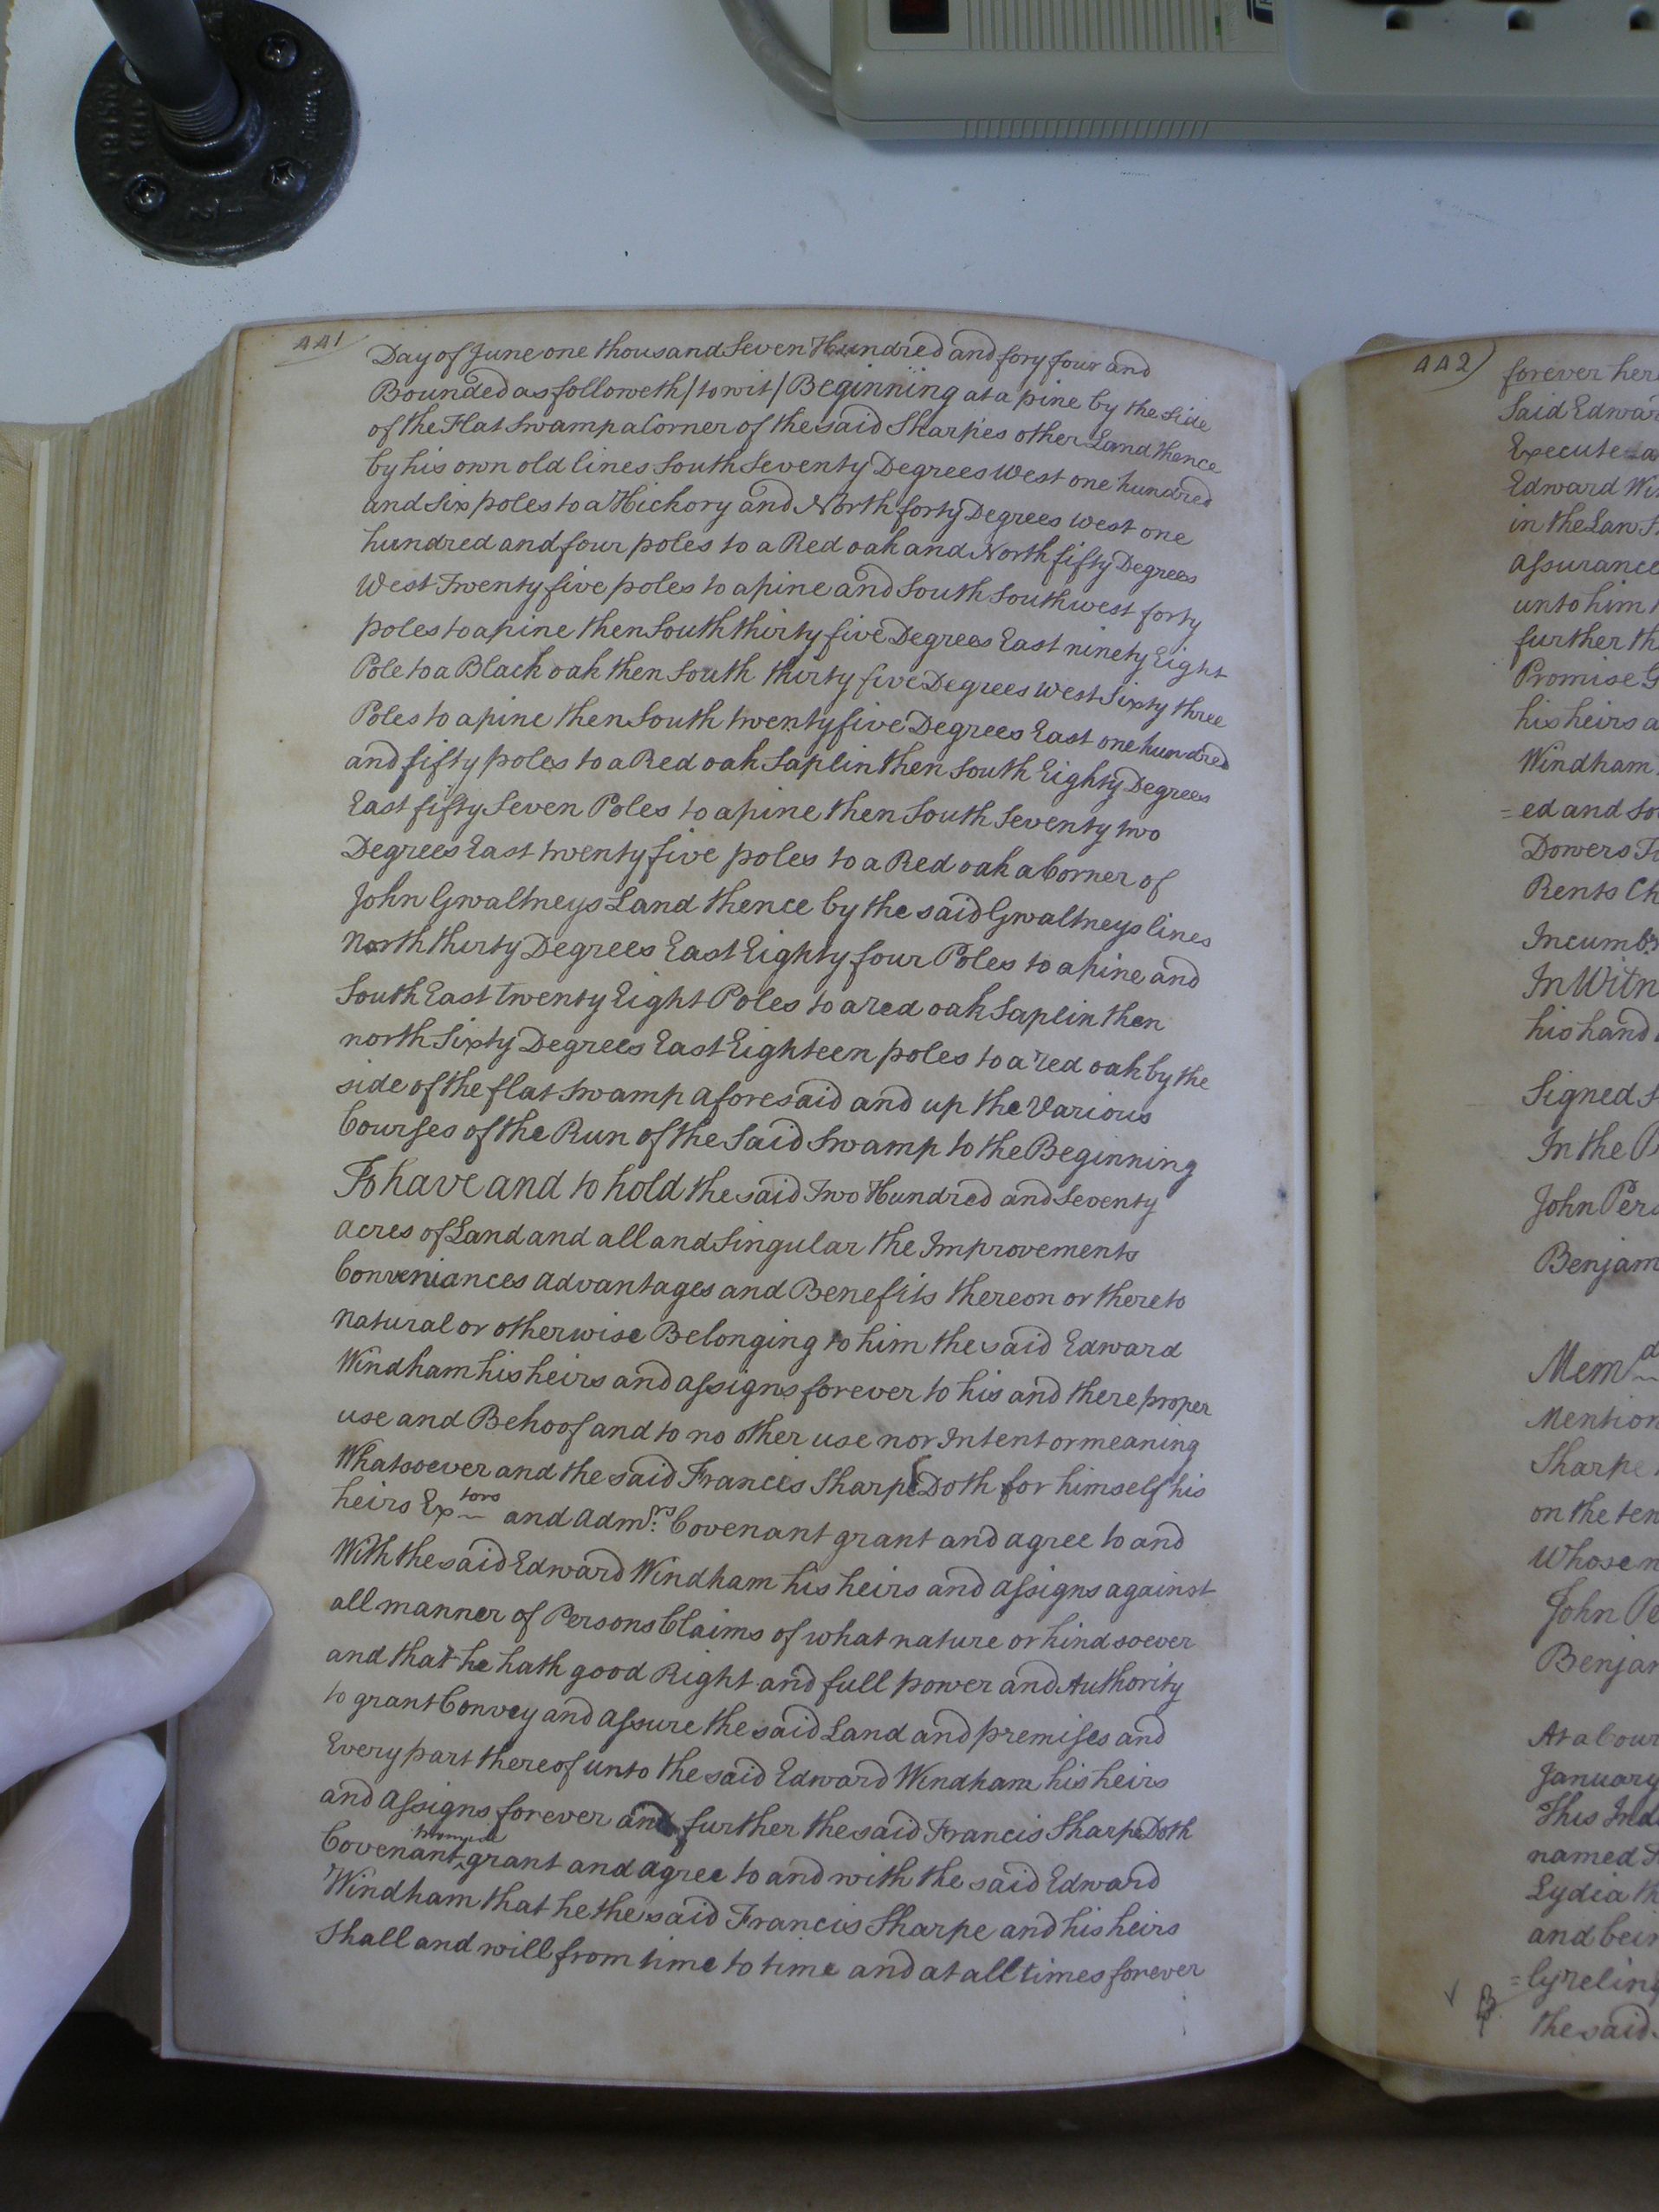 441
Day of June one thousand Seven Hundred and fory four and
Bounded as followeth / to wit / Beginning at a pine by the side
of the Flat Swamp a Corner of the said Sharpes other Land thence
by his own old lines South Seventy Degrees West one hundred
and Six poles to a Hickory and North forty Degrees west one
hundred and four poles to a Red oak and North fifty Degrees
West Twenty five poles to a pine and South Southwest forty
poles to a pine then South thirty five Degrees East ninety Eight
Pole to a Black oak then South thirty five Degrees west Sixty three
Poles to a pine then South twenty five Degrees East one hundred
and fifty poles to a Red oak Saplin then South Eighty Degrees
East fifty Seven Poles to a pine then South Seventy two
Degrees East twenty five poles to a Red oak a Corner of
John Gwaltneys Land thence by the said Gwaltneys lines
North thirty Degrees East Eighty four Poles to a pine and
South East twenty Eight Poles to a red oak Saplin then
north Sixty Degrees East Eighteen poles to a red oak by the
side of the flat swamp aforesaid and up the Various
Courses of the Run of the Said Swamp to the Beginning
To have and to hold the said Two Hundred and Seventy
acres of Land and all and Singular the Improvements
Conveniances advantages and Benefits thereon or thereto
natural or otherwise Belonging to him the said Edward
Windham his heirs and assigns forever to his and there proper
use and Behoof and to no other use nor Intent or meaning
Whatsoever and the said Francis Sharpe Doth for himself his
heirs Ex tors and Adm.rs Covenant grant and agree to and
With the said Edward Windham his heirs and assigns against
all manner of Persons Claims of what nature or kind soever
and that he hath good Right and full power and Authority
to grant Convey and assure the said Land and premises and
Every part thereof unto the said Edward Windham his heirs
and assigns forever and further the said Francis Sharpe Doth
Covenant promise grant and agree to and with the said Edward
Windham that he the said Francis Sharpe and his heirs
Shall and will from time to time and at all times forever
442
forever her
Said Edwar
Execute
Edward Wi
in the Law
assurance
unto him
further th
Promise G
his heirs a
Windham
=ed and So
Dowers
Rents Ch
Incumb
In Witn
his hand
Signed
In the P
John Per
Benjam
Mem d
Mention
Sharpe
on the ten
Whose n
John Pe
Benjam
At a Cour
January
This Ind
named
Lydia th
and bein
=ly relin
the said